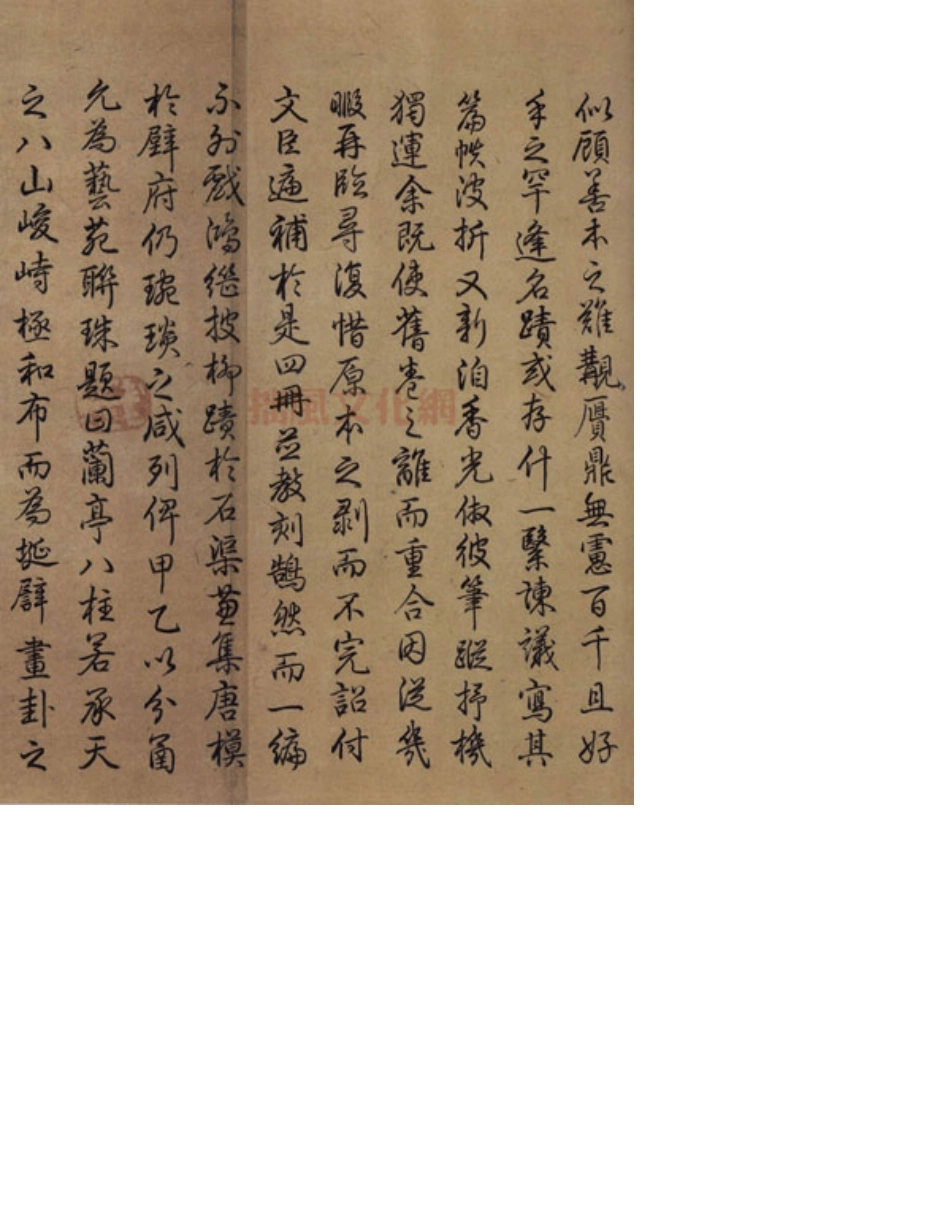 似顧善本之難覯贋鼎無慮百千且好
手之罕逢名蹟或存什一繄諫議寫其
篇帙波折又新洎香光倣彼筆蹤抒機
獨運余既使舊卷之離而重合因從幾
暇再臨尋復惜原本之剥而不完詔付
文臣遍補於是四冊並教刻鵠然而一編
不外戲鴻繼披柳蹟於石渠兼集唐模
於壁府仍琬琰之咸列俾甲乙以分函
允為藝苑聯珠題曰蘭亭八柱若承天
之八山峻峙極和布而為挻擘畫卦之
搨風文化網